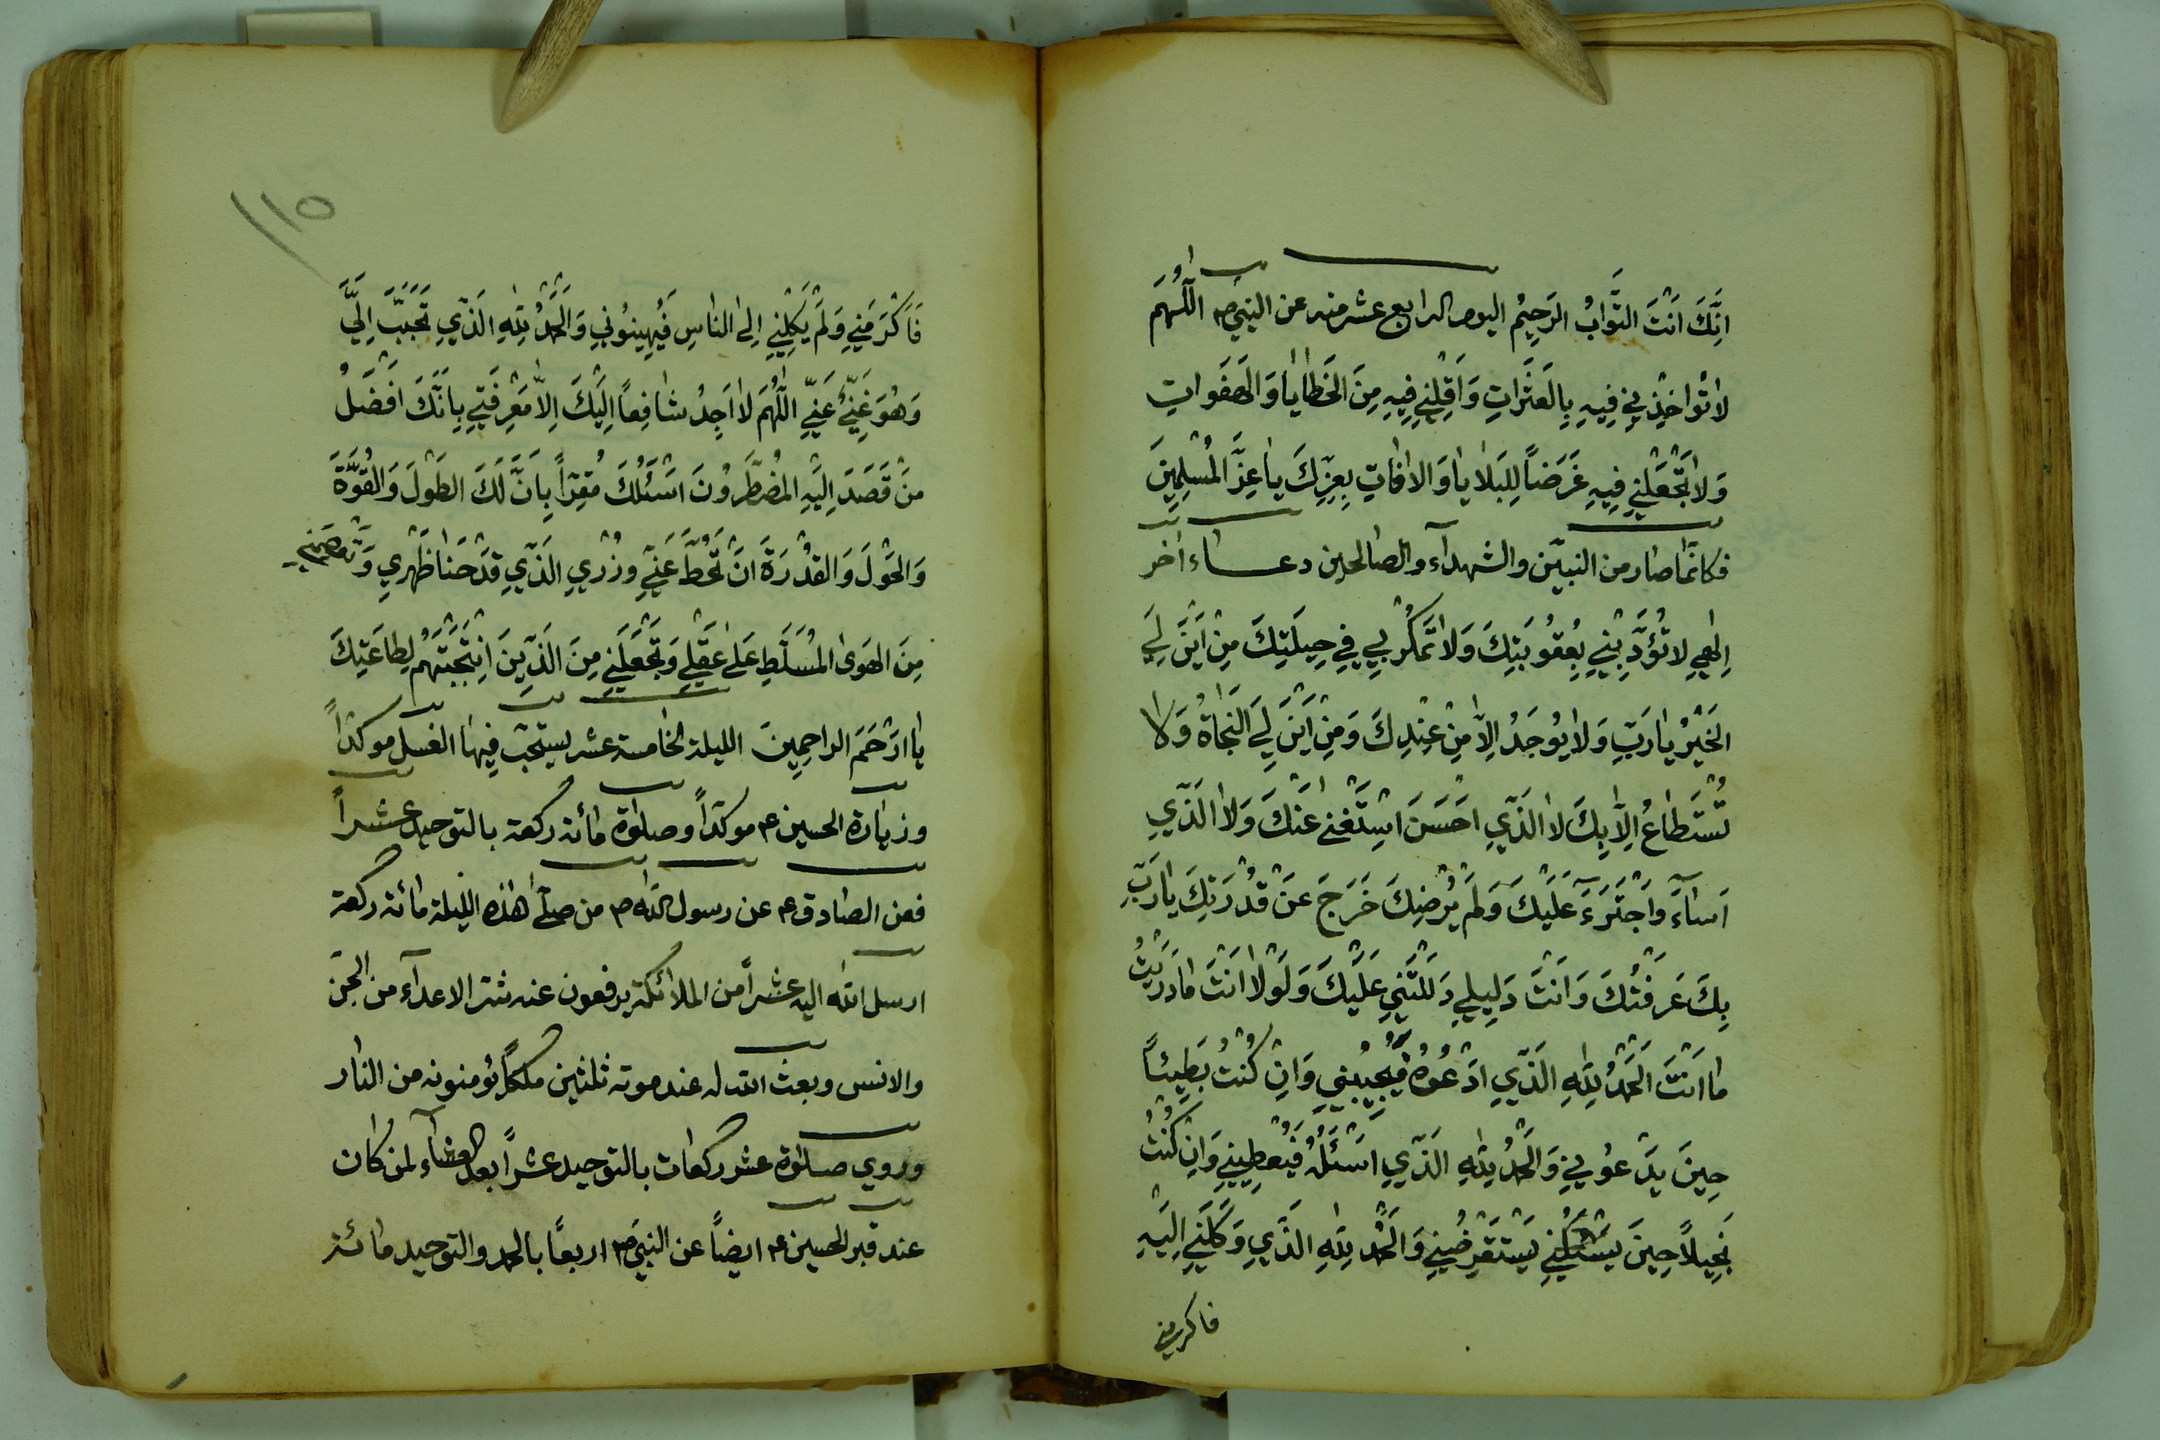 اِنَّكَ اَنْتَ التَّوّابُ الرَحيِمُ اليوم الرابع عشر منه عن النبيّ ص اللّهُمَّ
لاتُؤاخِذْنِي فِيهِ بِالعَثَراتِ وَاَقِلْنِي فِيهِ مِنَ الخَطايا وَالهَفَواتِ
وَلا تَجْعَلْنِي فِيهِ غَرَضاً لِلبَلايا وَالافاتِ بِعِزِّكَ يا عِزَّ المُسْلِمِينَ
فكانّما صار من النبيّن والشهدآء والصالحين دعاء اخر
اِلهِي لا تُؤَدِّبْنِي بِعُقُوبَتِكَ وَلا تَمْكُرْ بِي فِي حِيلَتِكَ مِنْ اَيْنَ لِيَ
الخَيْرُ يارَبِّ وَلا يُوجَدُ اِلاّ مِنْ عِنْدِكَ وَمِنْ اَيْنَ لِيَ النَجاةُ وَلا
تُسْتَطاعُ اِلاّ بِكَ لا الَذّي اَحْسَنَ اسْتَغْنى عَنْكَ وَلا الَذّي
اَساءَ وَاجْتَرَءَ عَلَيْكَ وَلَمْ يُرْضِكَ خَرَجَ عَنْ قُدْرَتِكَ يارَبِّ
بِكَ عَرَفْتُكَ وَاَنْتَ دَلِيلِي دَلَلْتَنِي عَلَيْكَ وَلَوْلا اَنْتَ مادَرَيْتُ
ما اَنْتَ الحَمْدُ لِلّهِ الَذّي اَدْعُوهُ فَيُجِيبُنِي وَاِنْ كُنْتُ بَطِيئاً
حِينَ يَدْعُونِي وَالحَمْدُ لِلّهِ الَذّي اَسْئَلُهُ فَيُعْطِينِي وَاِنْ كُنْتُ
بَخِيلاً حِينَ يَسْتَقْرِضُنِي وَالحَمْدُ لِلّهِ الَذّي وَكَلَنِي اِلَيْهِ
فاكرمني
١١٥
فَاَكْرَمَنِي وَلَمْ يَكِلْنِي اِلى الناسِ فَيُهِينُونِي وَالحَمْدُ لِلّهِ الَذّي تَحَبَّبَ اِلَيَّ
وَهُوَ غَنِيٌّ عَنِّي اللّهُمَّ لا اَجِدُ شافِعاً اِلَيْكَ اِلاّ مَعْرِفَتِي بِاَنَّكَ اَفْضَلُ
مَنْ قَصَدَ اِلَيْهِ المُضْطَرُّونَ اَسْئَلُكَ مُقِرّاً بِاَنَّ لَكَ الطَوْلَ وَالقُوَّةَ
وَالحَوْلَ وَالقُدْرَةَ اَنْ تَحُطَّ عَنِّي وِزْرِي الَذّي قَدْ حَنا ظَهْرِي وَتَعصمني
مِنَ الهَوىٰ المُسَلَّطِ عَلىٰ عَقْلِي وَتَجْعَلَنِي مِنَ الَذّينَ انْتَجَبْتَهُمْ لِطاعَتِكَ
يا اَرْحَمَ الراحِمِينَ الليلة الخامسة عشر يستحبّ فيها الغسل موكّداً
وزيارة الحسين ع موكّداً وصلوة مائة ركعة بالتوحيد عشراً
فعن الصادق ع عن رسول اللّه ص من صلّى هذه الليلة مائة ركعة
ارسل اللّه اليه عشراً من الملائكة يرفعون عنه شر الاعدآء من الجنّ
والانس وبعث اللّه له عند موته ثلثين ملكاً يؤمنونه من النار
وروي صلوة عشر ركعات بالتوحيد عشراً بعد العشآء لمن كان
عند قبر الحسين ع ايضاً عن النبيّ ص اربعاً بالحمد والتوحيد مائة